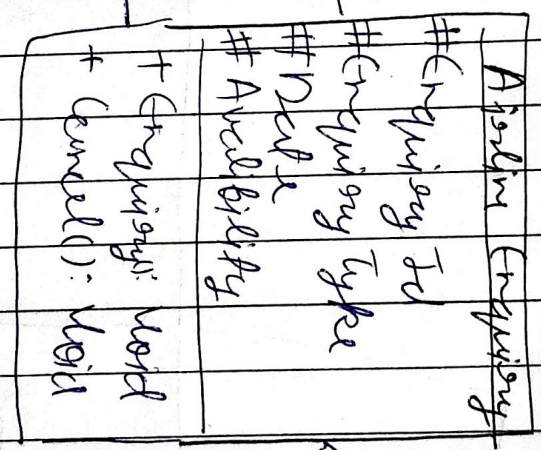 Airline Enquiry
# Enquiry Id
# Enquiry Type
# Date
# Avalibility
+ Enquiry: Void
+ Cancel(): Void